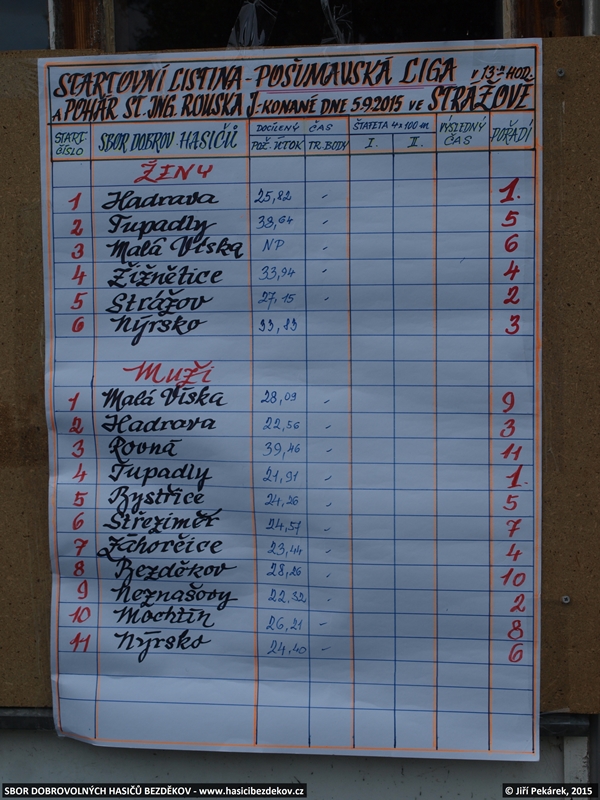 STARTOVNÍ LISTINA - POŠUMAVSKÁ LIGA V 13.00 HOD.
A POHÁR ST. ING. ROUSKA J. - KONANÉ DNE 5.9.2015 VE STRÁŽOVĚ
START. ČÍSLO SBOR DOBROV. HASIČŮ DOCÍLENÝ ČAS POŽ. ÚTOK TR. BODY ŠTAFETA 4x100 m I. II. VÝSLEDNÝ ČAS POŘADÍ
ŽENY
1 Hadrava 25,82 - 1.
2 Tupadly 38,64 - 5
3 Malá Víska NP - 6
4 Žižnětice 33,94 - 4
5 Strážov 27,15 - 2
6 Nýrsko 33,83 3
MUŽI
1 Malá Víska 28,09 - 9
2 Hadrava 22,56 - 3
3 Rovná 39,46 - 11
4 Tupadly 21,91 - 1.
5 Bystřice 24,26 - 5
6 Střeziměř 24,57 - 7
7 Záhorčice 23,44 - 4
8 Bezděkov 28,26 - 10
9 Neznašovy 22,52 - 2
10 Mochtín 26,21 - 8
11 Nýrsko 24,40 - 6
SBOR DOBROVOLNÝCH HASIČŮ BEZDĚKOV - www.hasicibezdekov.cz
© Jiří Pekárek, 2015